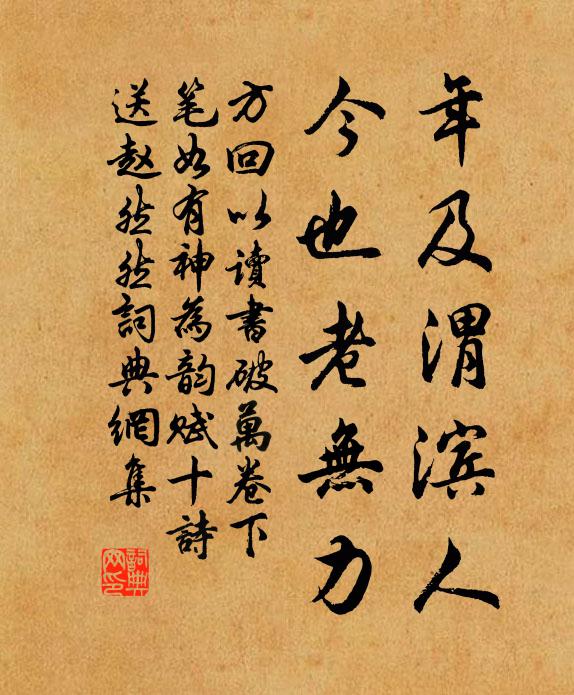 年及渭滨人
今也老無力
方回以讀書破萬卷下
笔如有神為韵赋十詩
送赵然然詞典網集
詞典网印